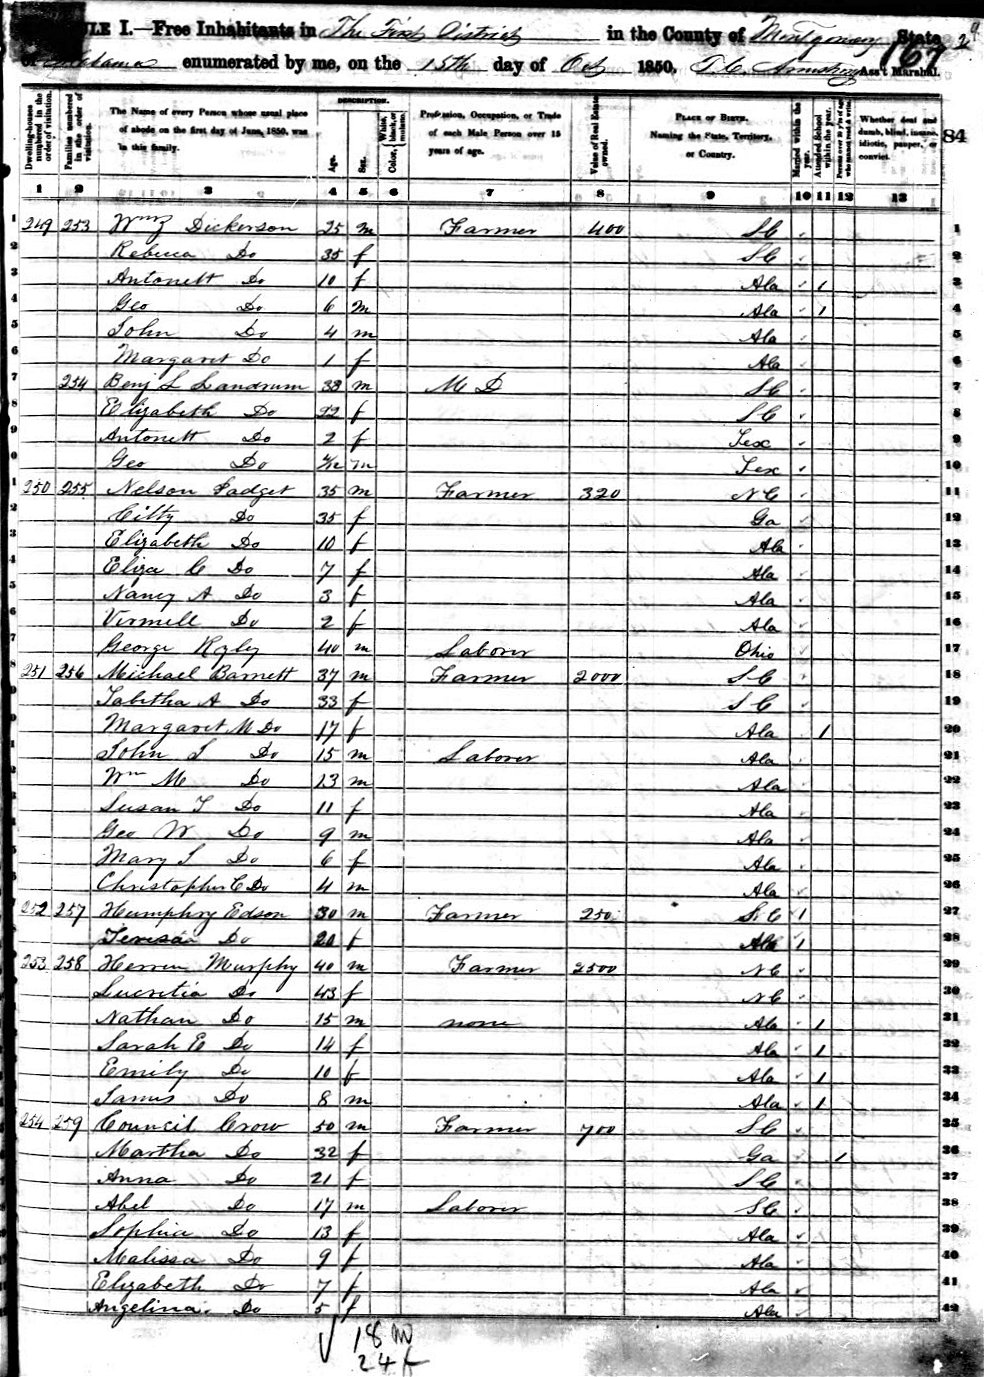 ULE I.—Free Inhabitants in The First District in the County of Montgomery State
of Alabama enumerated by me, on the 15th day of Oct 1850, T. C. Ass't Marshal. 167
84
DESCRIPTION.
Dwelling-houses numbered in the order of visitation.
Families numbered in the order of visitation.
The Name of every Person whose usual place of abode on the first day of June, 1850, was in this family.
Age.
Sex.
Color, White, black, or mulatto.
Profession, Occupation, or Trade of each Male Person over 15 years of age.
Value of Real Estate owned.
PLACE OF BIRTH. Naming the State, Territory, or Country.
Married within the year.
Attended School within the year.
Persons over 20 y'rs of age who cannot read & write.
Whether deaf and dumb, blind, insane, idiotic, pauper, or convict.
1 2 3 4 5 6 7 8 9 10 11 12 13
1 249 253 Wm Dickerson 25 m Farmer 400 SC 1
2 Rebecca Do 35 f SC 2
3 Antonett Do 10 f Ala 1 3
4 Geo Do 6 m Ala 1 4
5 John Do 4 m Ala 5
6 Margaret Do 1 f Ala 6
7 254 Benj L Landrum 38 m M D SC 7
8 Elizabeth Do 22 f SC 8
9 Antonett Do 2 f Tex 9
0 Geo Do m Tex 10
1 250 255 Nelson Padget 35 m Farmer 320 NC 11
2 Citty Do 35 f Ga 12
3 Elizabeth Do 10 f Ala 13
4 Eliza C Do 7 f Ala 14
5 Nancy A Do 3 f Ala 15
6 Virmell Do 2 f Ala 16
7 George 40 m Laborer Ohio 17
8 251 256 Michael Barnett 37 m Farmer 2000 SC 18
9 Tabitha A Do 33 f SC 19
0 Margaret M Do 17 f Ala 1 20
1 John S Do 15 m Laborer Ala 21
2 Wm M Do 13 m Ala 22
3 Susan T Do 11 f Ala 23
4 Geo W Do 9 m Ala 24
5 Mary S Do 6 f Ala 25
6 Christopher C Do 4 m Ala 26
7 252 257 Humphry Edson 30 m Farmer 250 S.C 1 27
8 Teresa Do 20 f Ala 1 28
9 253 258 Herren Murphy 40 m Farmer 2500 NC 29
0 Lucretia Do 43 f NC 30
1 Nathan Do 15 m none Ala 1 31
2 Sarah E Do 14 f Ala 1 32
3 Emily Do 10 f Ala 1 33
4 James Do 8 m Ala 1 34
5 254 259 Council Crow 50 m Farmer 700 SC 35
6 Martha Do 32 f Ga 1 36
7 Anna Do 21 f SC 37
8 Abel Do 17 m Laborer SC 38
9 Sophia Do 13 f Ala 39
0 Malissa Do 9 f Ala 40
1 Elizabeth Do 7 f Ala 41
2 Angelina Do 5 f Ala 42
18 m
24 f